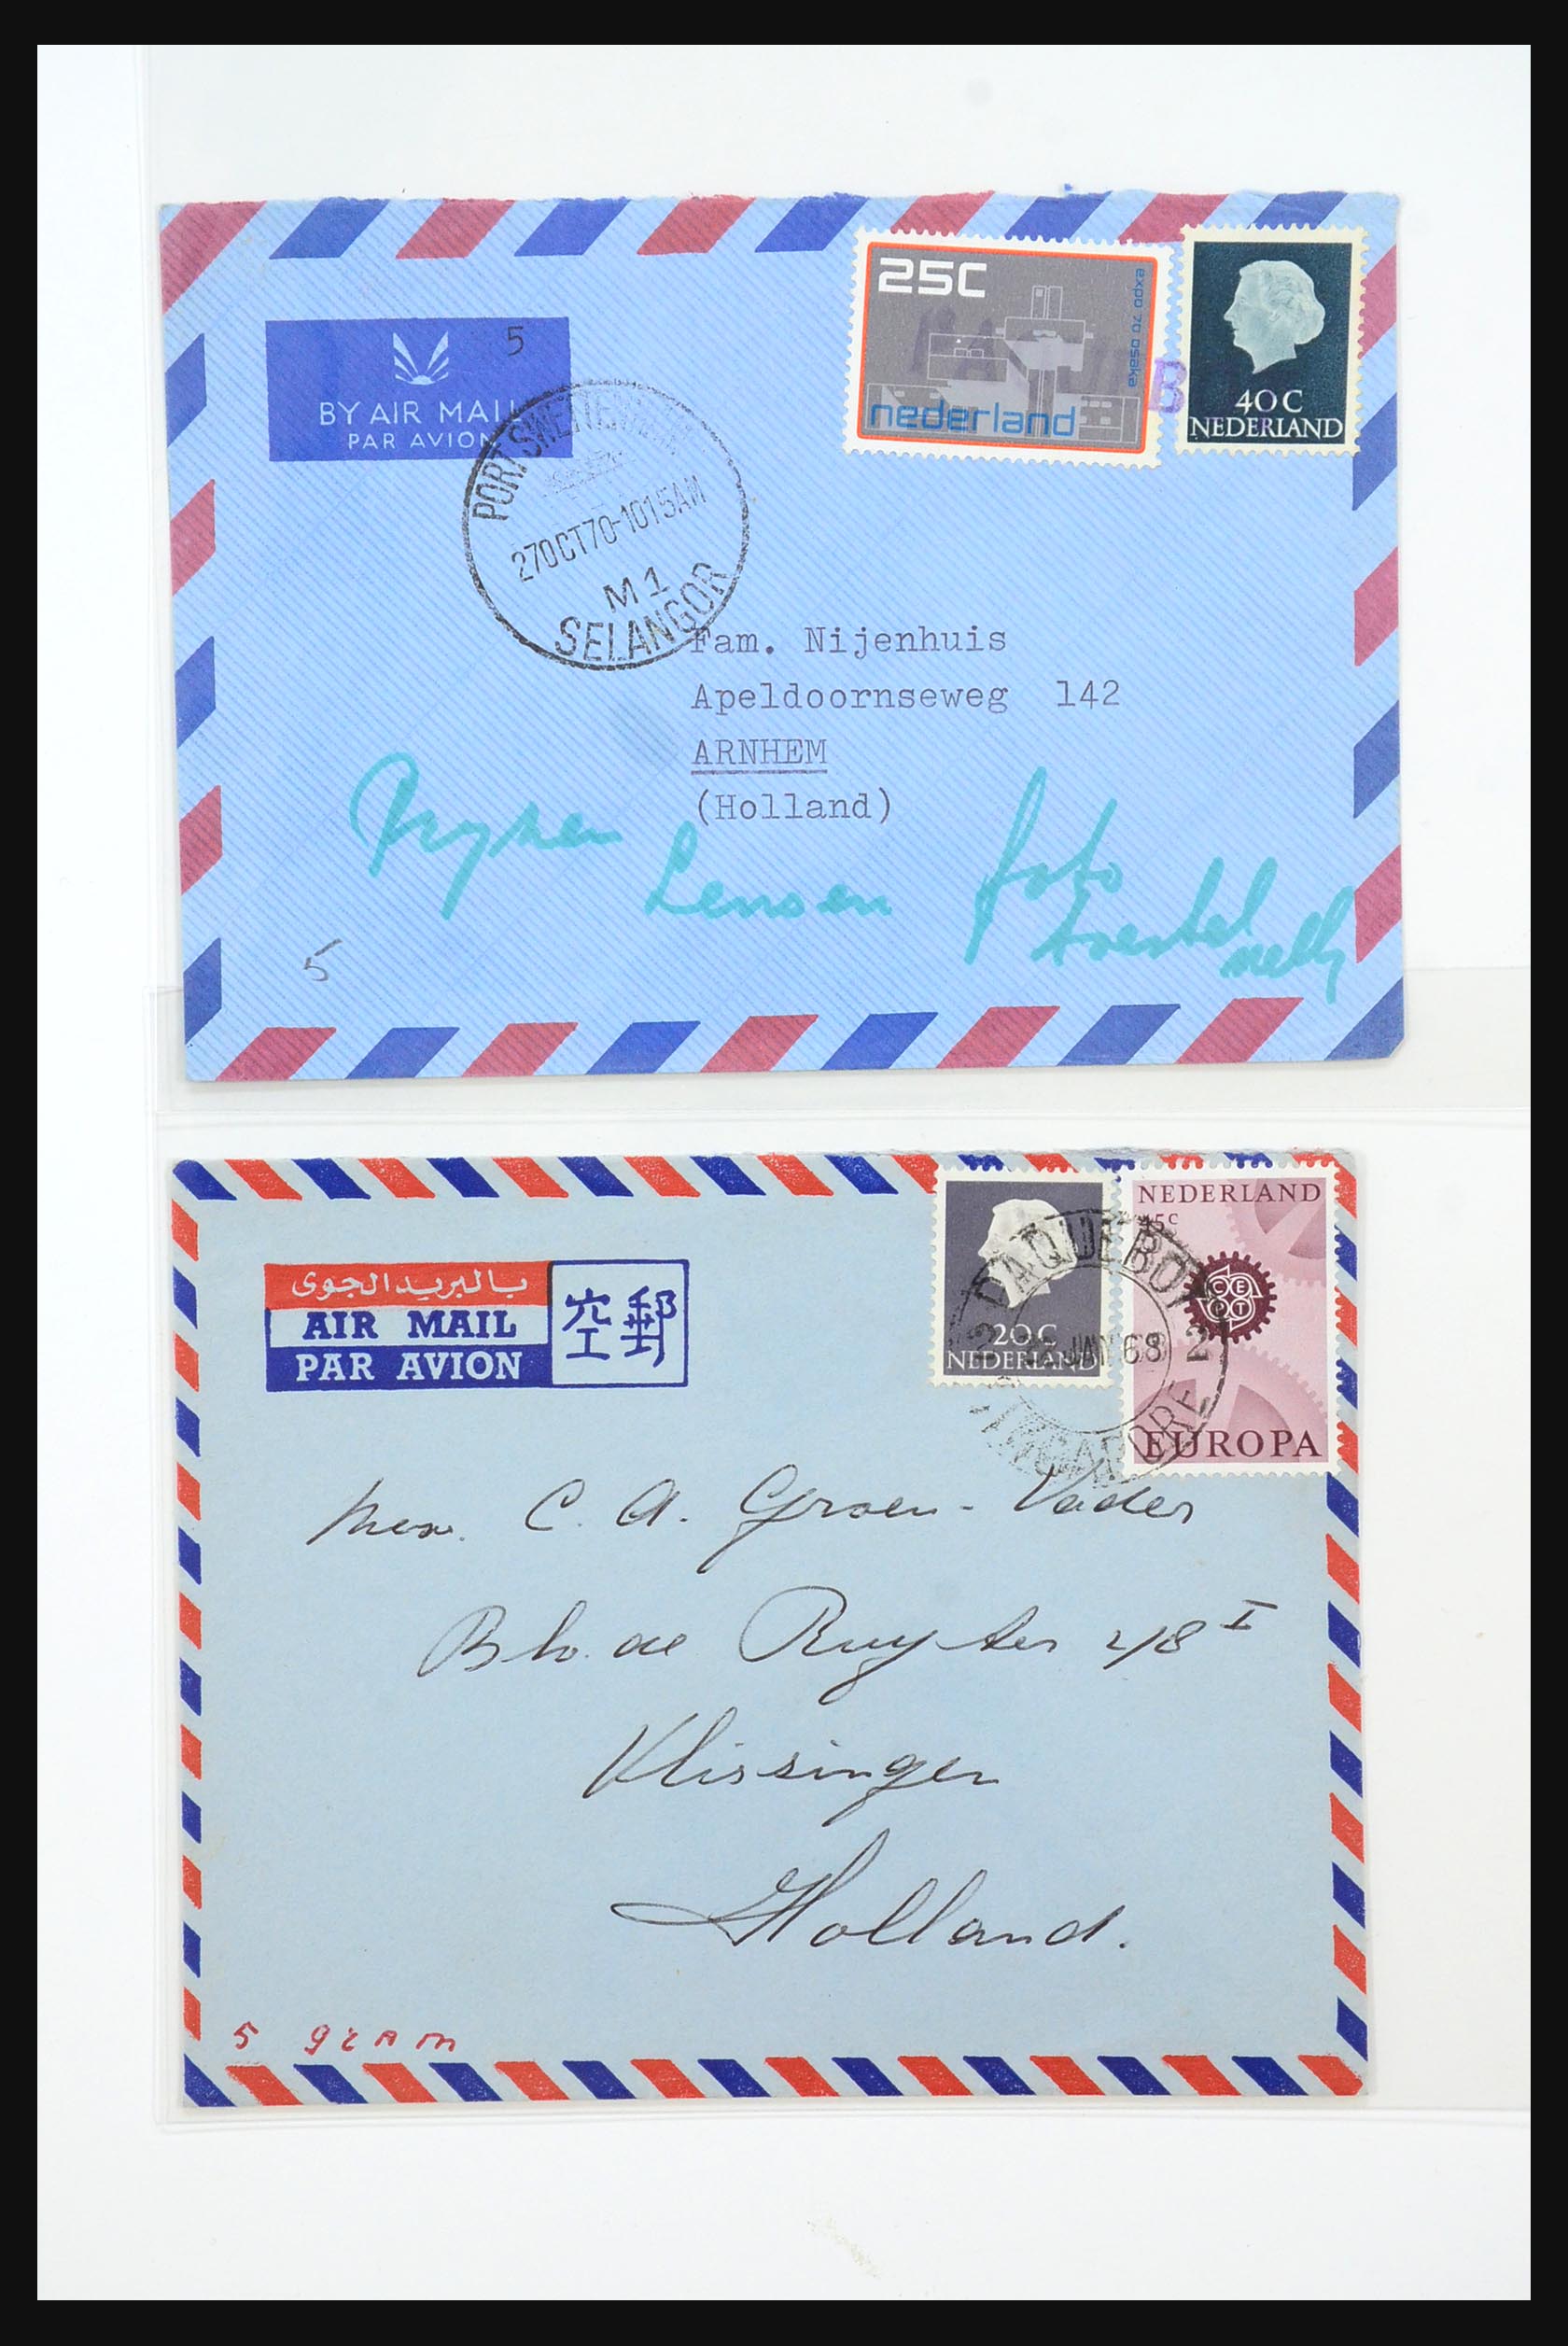 25C
expo 70 osaka
nederland
40C
NEDERLAND
B
5
BY AIR MAIL
PAR AVION
PORT SWETTENHAM
27OCT70-1015AM
M1
SELANGOR
Fam. Nijenhuis
Apeldoornseweg 142
ARNHEM
(Holland)
Lensen foto
toestel
nelly
5
20C
NEDERLAND
NEDERLAND
45c
CEPT
EUROPA
PAQUEBOT
JAN 68 2
SINGAPORE
بالبريد الجوى
AIR MAIL
PAR AVION
空郵
Mevr. C. A. Groen-Vader
Blv. de Ruyter 48 I
Vlissingen
Holland.
5 gram